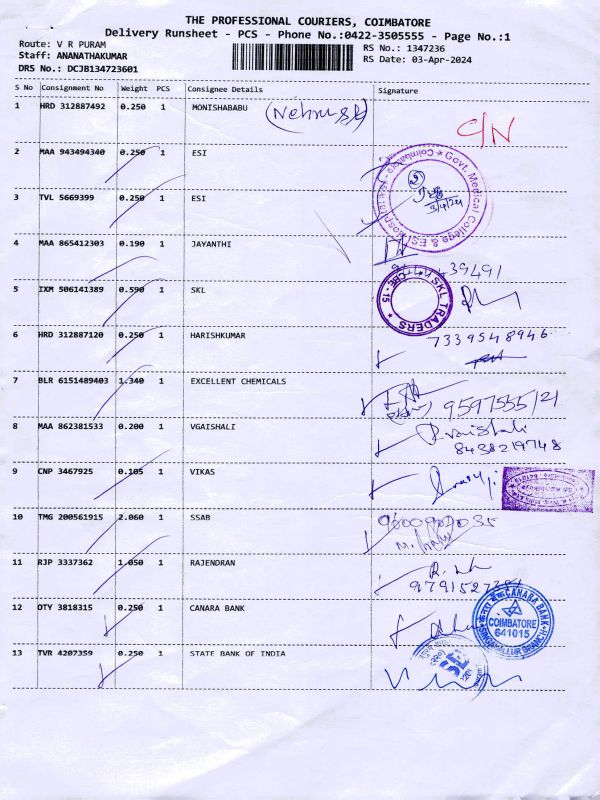 THE PROFESSIONAL COURIERS, COIMBATORE
Delivery Runsheet - PCS - Phone No.:0422-3505555 - Page No.:1
Route: V R PURAM
Staff: ANANATHAKUMAR
DRS No.: DCJB134723601
RS No.: 1347236
RS Date: 03-Apr-2024
S No Consignment No Weight PCS Consignee Details Signature
1 HRD 312887492 0.250 1 MONISHABABU
C/N
2 MAA 943494340 0.250 1 ESI
Govt. Medical College & ESI Hospital Coimbatore
3/4/24
3 TVL 5669399 0.250 1 ESI
4 MAA 865412303 0.190 1 JAYANTHI
39491
5 IXM 506141389 0.590 1 SKL
SKL TRADERS CBE - 15
6 HRD 312887120 0.250 1 HARISHKUMAR
7339548946
7 BLR 6151489403 1.340 1 EXCELLENT CHEMICALS
9597555121
8 MAA 862381533 0.200 1 VGAISHALI
8438219748
9 CNP 3467925 0.105 1 VIKAS
10 TMG 200561915 2.060 1 SSAB
11 RJP 3337362 1.050 1 RAJENDRAN
12 OTY 3818315 0.250 1 CANARA BANK
CANARA BANK
COIMBATORE
641015
SINGANALLUR BRANCH
13 TVR 4207359 0.250 1 STATE BANK OF INDIA